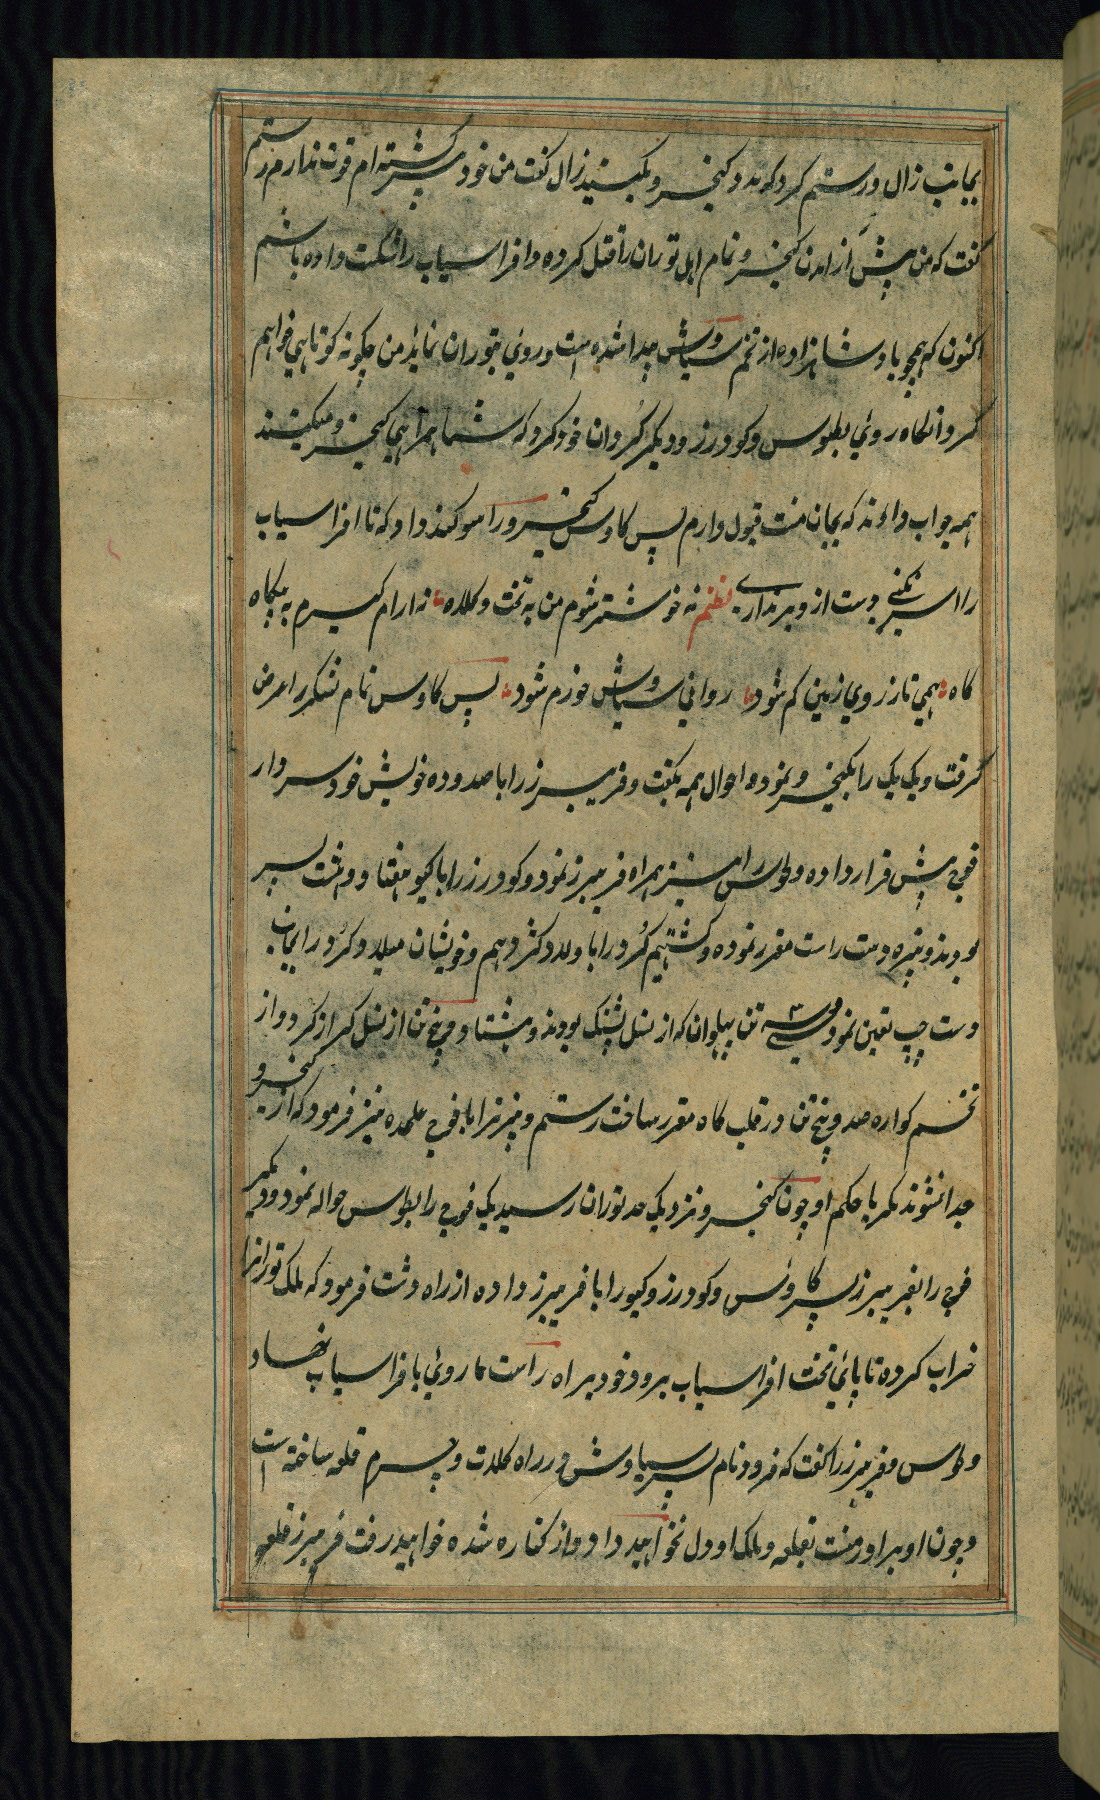 بجانب زال و رستم کرد که مدد کیخسرو بکنید زال کفت من خود پیر کشته ام قوت ندارم رستم
کفت که من پیش از امدن کیخسرو تمام اهل توران را قتل کرده و افراسیاب را شکست داده باشم
اکنون که همچو پادشاهزاده از تخم سیاوش پیدا شده است و روی بتوران نماید من چکونه کوتاهی خواهم
کرد انکاه روی بطوس و کودرز و دیکر کردان خود کرد که شما همراهی کیخسرو میکنید
همه جواب دادند که بجان منت قبول دارم پس کاوس کیخسرو را سوکند داد که تا افراسیاب
را اسیر نکنی دست ازو برنداری نظم نه خوشتر شوم من به تخت و کلاه نه ارام کیرم به بیکاه
کاه همی تا ز روی زمین کم شود روانی سیاوش خرم شود پس کاوس تمام لشکر را عرض
کرفت و یک یک را بکیخسرو نموده احوال همه بکفت و فریبرز را با صد و ده خویش خود سردار
فوج پیش قرار داده و طوس را نیز همراه فریبرز نمود و کودرز را با کیو هفتاد و هشت پسر
بودند و نبیره دست راست مقرر نموده و کشتهم کرد را با ولد کژدهم و خویشان میلاد کرد را بجانب
دست چپ تعین نمود و سی سه تن پهلوان که از نسل پشنک بودند و هشتاد و پنج تن از نسل کراز کرد و از
تخم کواره صد و پنج تن در قلب کاه مقرر ساخت رستم و بیژن را با فوج علحده نیز فرمود که از کیخسرو
جدا نشوند مکر با حکم او چون کیخسرو نزدیک حد توران رسید یک فوج را بطوس حواله نمود و دیکر
فوج را بفریبرز پسر کاوس و کودرز و کیو را با فریبرز داده از راه دشت فرمود که ملک توران را
خراب کرده تا پائی تخت افراسیاب برود خود براه راست ما روی بافراسیاب نهاد
و طوس و فریبرز را کفت که فرود نام پسر سیاوش در راه کلات و چرم قلعه ساخته است
و چون او برادر منست بقلعه و ملک او دل نخواهید داد و از کناره شده خواهید رفت فریبرز قلعه